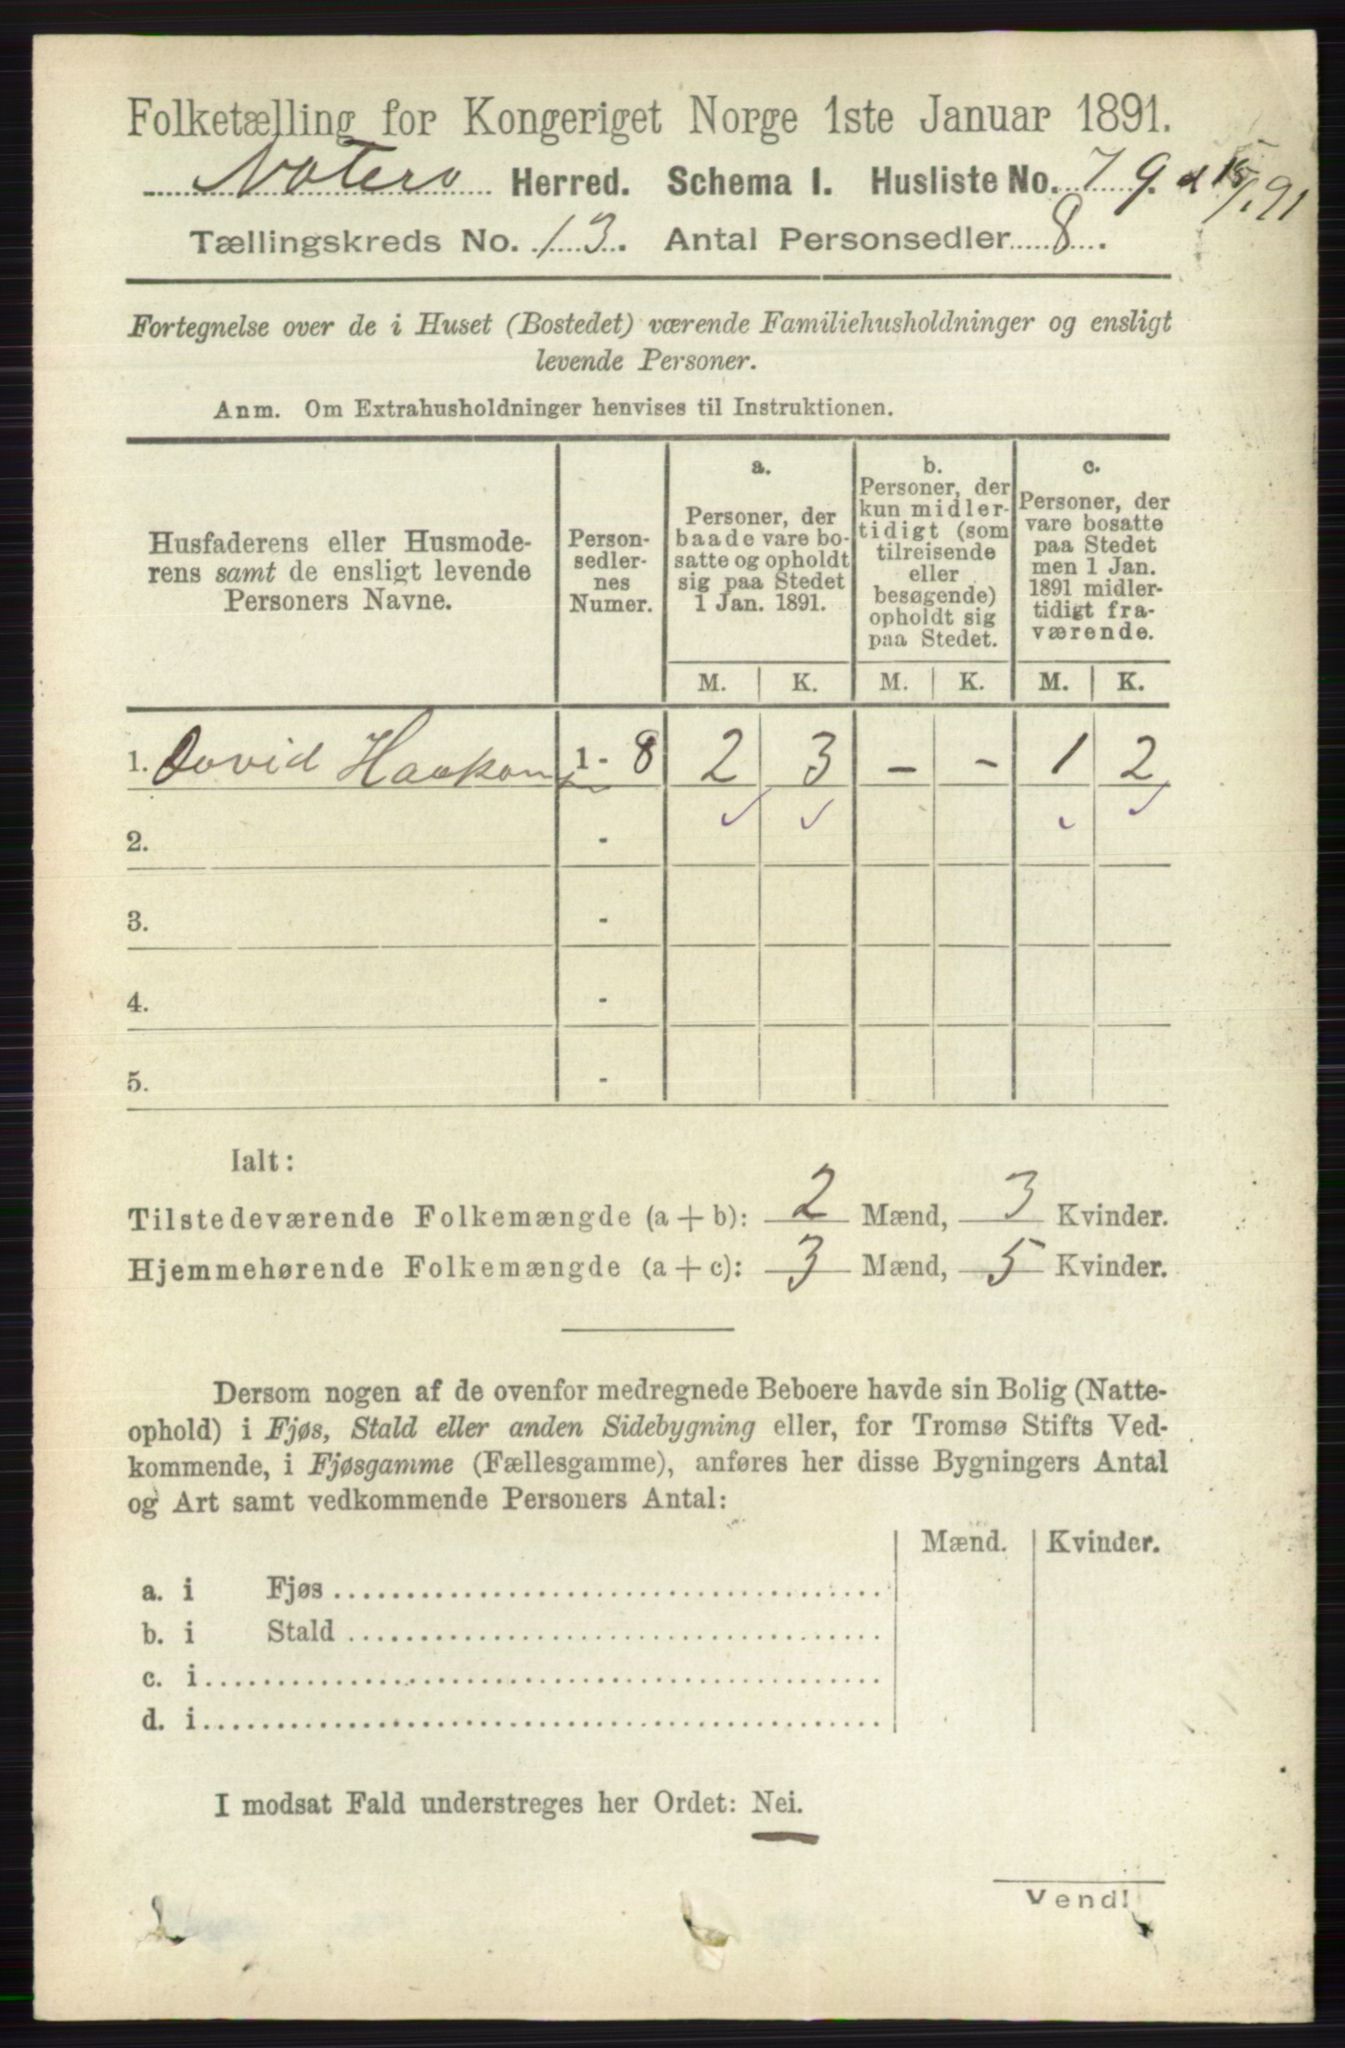 Folketælling for Kongeriget Norge 1ste Januar 1891.
Notero Herred. Schema I. Husliste No. 79.
Tællingskreds No. 13. Antal Personsedler 8.
Fortegnelse over de i Huset (Bostedet) værende Familiehusholdninger og ensligt
levende Personer.
Anm. Om Extrahusholdninger henvises til Instruktionen.
Husfaderens eller Husmode-
rens samt de ensligt levende
Personers Navne.
Person-
sedler-
nes
Numer.
a.
Personer, der
baade vare bo-
satte og opholdt
sig paa Stedet
1 Jan. 1891.
b.
Personer, der
kun midler-
tidigt (som
tilreisende
eller
besøgende)
opholdt sig
paa Stedet.
c.
Personer, der
vare bosatte
paa Stedet
men 1 Jan.
1891 midler-
tidigt fra-
værende.
M. K. M. K. M. K.
1. David Haakon 1 - 8 2 3 - - 1 2
2. -
3. -
4. -
5. -
Ialt:
Tilstedeværende Folkemængde (a + b): 2 Mænd, 3 Kvinder.
Hjemmehørende Folkemængde (a + c): 3 Mænd, 5 Kvinder.
Dersom nogen af de ovenfor medregnede Beboere havde sin Bolig (Natte-
ophold) i Fjøs, Stald eller anden Sidebygning eller, for Tromsø Stifts Ved-
kommende, i Fjøsgamme (Fællesgamme), anføres her disse Bygningers Antal
og Art samt vedkommende Personers Antal:
Mænd. Kvinder.
a. i Fjøs
b. i Stald
c. i
d. i
I modsat Fald understreges her Ordet: Nei.
Vend!